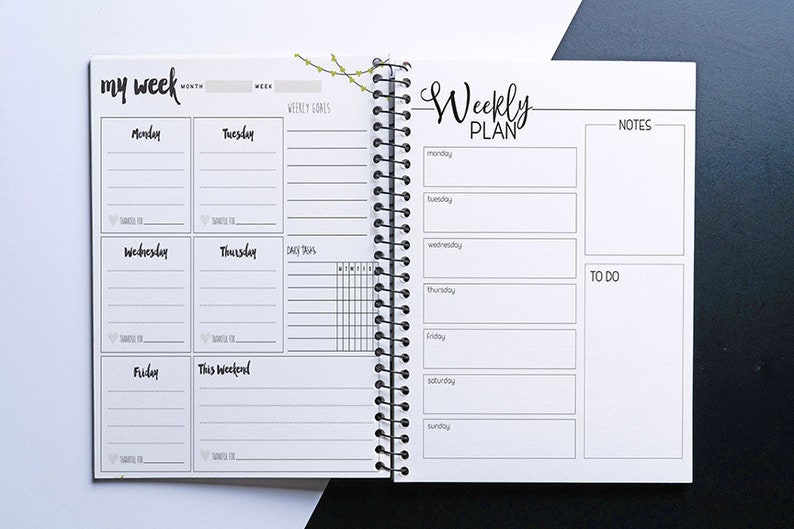 my week MONTH WEEK
WEEKLY GOALS
Monday
THANKFUL FOR
Tuesday
THANKFUL FOR
Wednesday
THANKFUL FOR
Thursday
THANKFUL FOR
DAILY TASKS
Friday
THANKFUL FOR
This Weekend
THANKFUL FOR
Weekly
PLAN
monday
tuesday
wednesday
thursday
friday
saturday
sunday
NOTES
TO DO